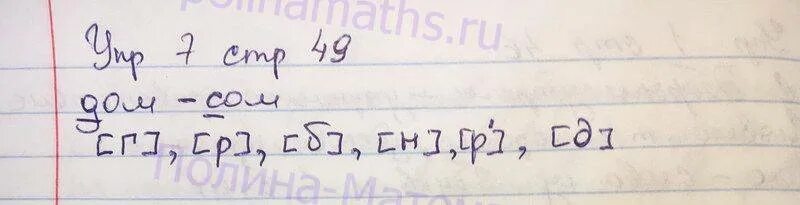 polinamaths.ru
Упр 7 стр 49
дом - сом
[г], [р], [б], [н], [р'], [д]
Полина-Матема